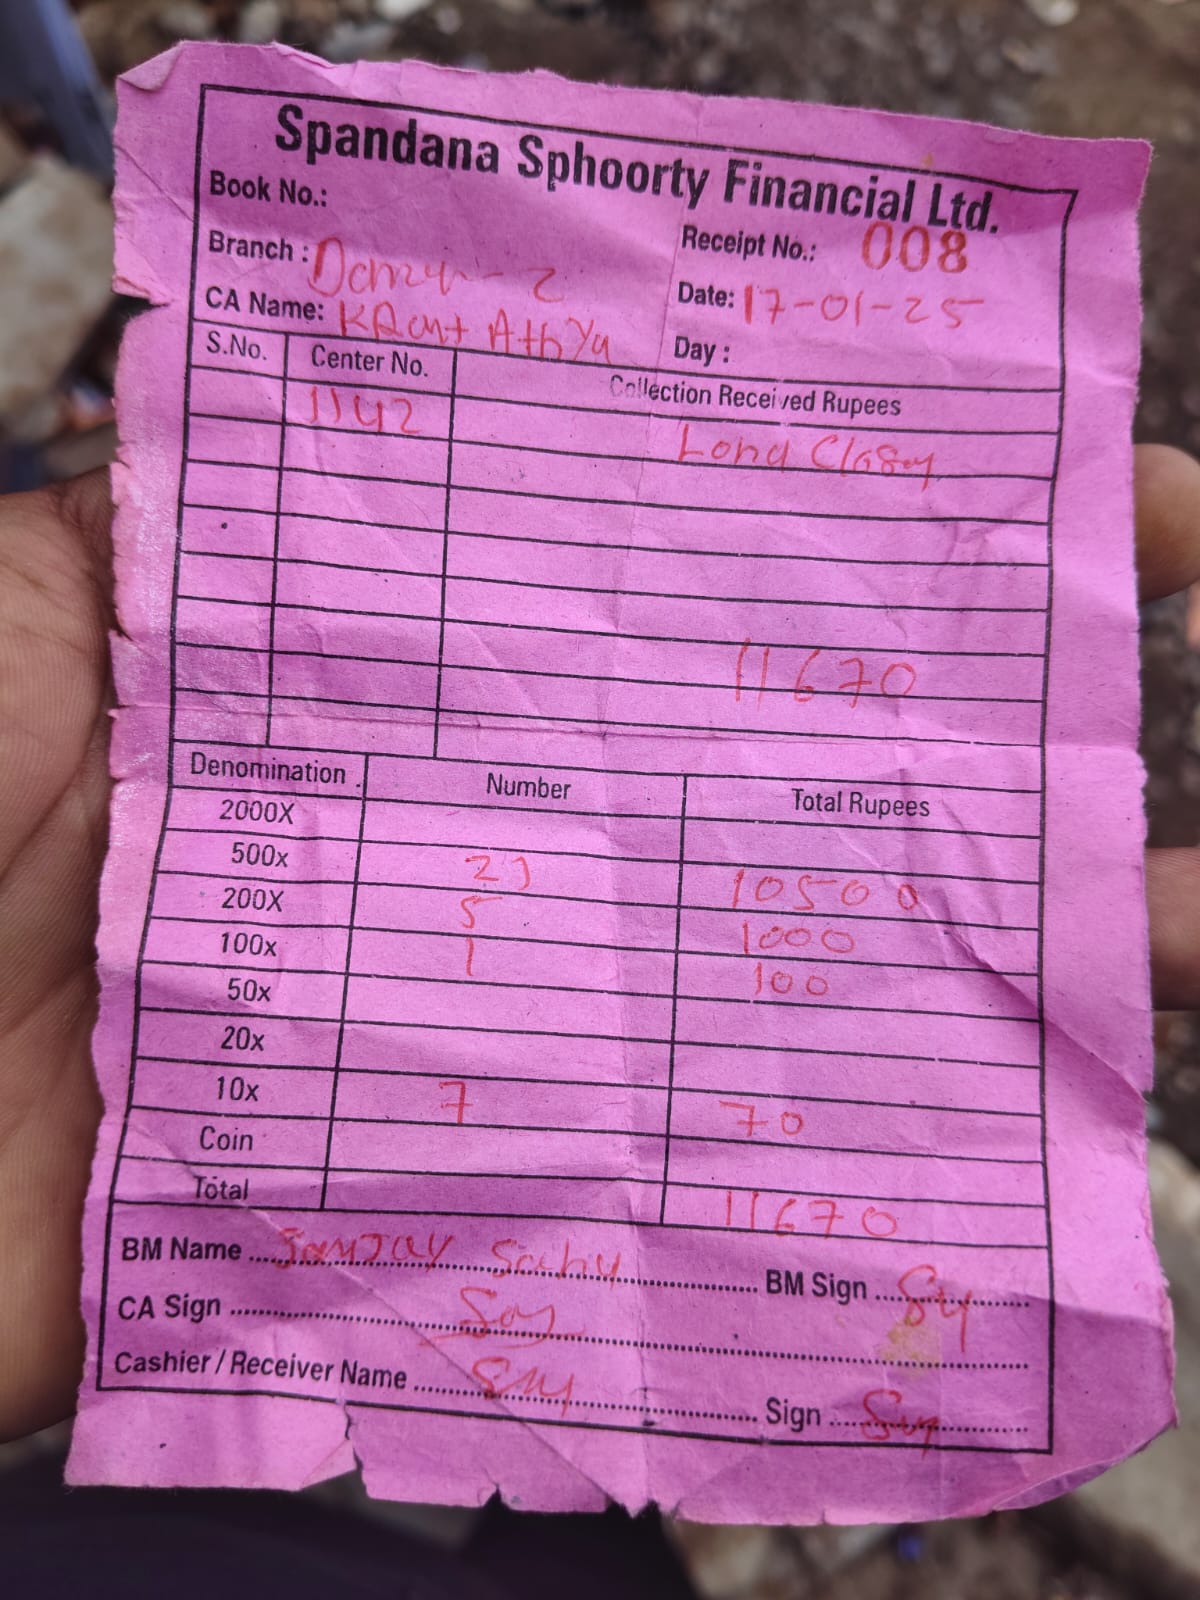 Spandana Sphoorty Financial Ltd.
Book No.:
Receipt No.: 008
Branch : - 2
Date: 17-01-25
CA Name:
Day :
S.No. Center No. Collection Received Rupees
1142
11670
Denomination Number Total Rupees
2000X
500x 21 10500
200X 5 1000
100x 1 100
50x
20x
10x 7 70
Coin
Total 11670
BM Name Sanjay Sahu BM Sign
CA Sign
Cashier / Receiver Name Sign